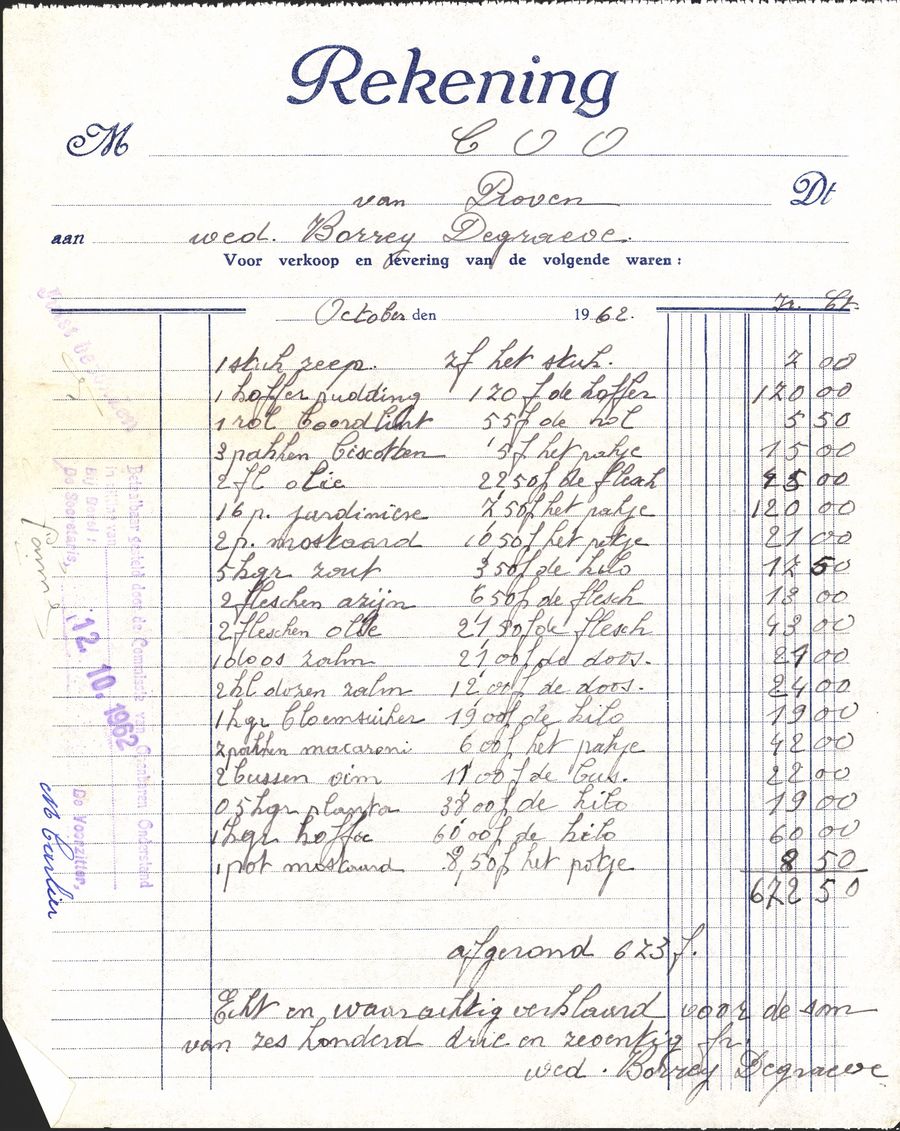 Rekening
M C O O
van Proven Dt
aan wed. Borrey Degraeve.
Voor verkoop en levering van de volgende waren :
Fr. Ct.
October den 1962.
1 stuk zeep. 7f het stuk. 7 00
1 koffer pudding 120 f de koffer 120 00
1 rol boordlint 5 5f de rol 5 50
3 pakken biscotten 5f het pakje 15 00
2 fl olie 22 50f de flesch 45 00
16 p. jardiniere 7 50f het pakje 120 00
2 p. mostaard 10 50f het potje 21 00
5 kgr zout 3 50f de kilo 17 50
2 fleschen azijn 6 50f de flesch 13 00
2 fleschen olie 21 50f de flesch 43 00
1 doos zalm 27 00f de doos. 27 00
2 kl dozen zalm 12 00f de doos. 24 00
1 kgr bloemsuiker 19 00f de kilo 19 00
7 pakken macaroni 6 00f het pakje 42 00
2 bussen vim 11 00f de bus. 22 00
0 5 kgr planta 38 00f de kilo 19 00
1 kgr koffie 60 00f de kilo 60 00
1 pot mostaard 8,50f het potje 8 50
672 50
afgerond 673 f.
Echt en waarachtig verklaard voor de som
van zes honderd drie en zeventig fr.
wed. Borrey Degraeve
Betaalbaar gesteld door de Commissie van Openbaren Onderstand
in zitting van
Bij Bevel :
De Secretaris, De Voorzitter,
12. 10. 1962
M Carlier